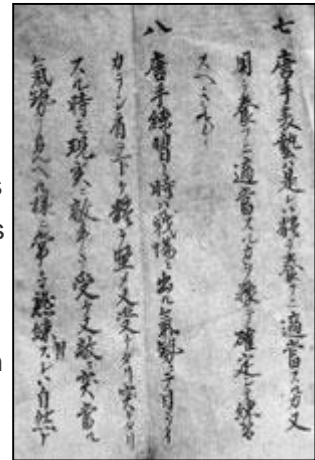 七 唐手表藝ハ是レハ體ヲ養フニ適當スルカ又
用ヲ養フニ適當スルカヲ豫テ確定シテ練習
スヘキ
八 唐手練習ノ時ハ戦場ニ出ル氣勢ニテ目ヲイ
カラシ肩ヲ下ケ體ヲ堅メ又受ケタリ突キタリ
スル時モ現実ニ敵手ヲ受ケ又敵ニ突當ル
氣勢ノ見ヘル様ニ常々練スレハ自然ト